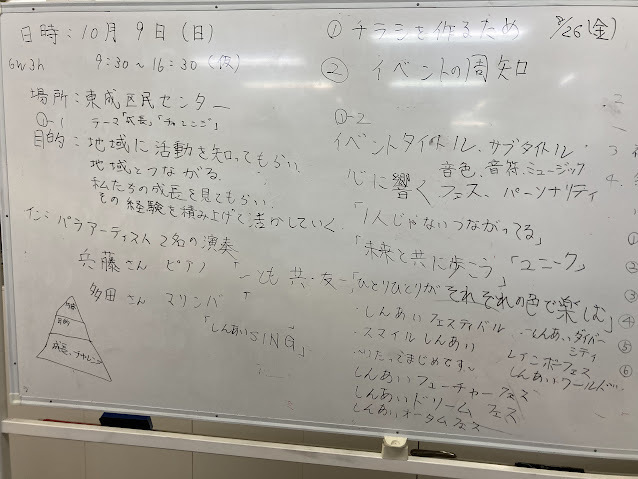 日時：10月 9日（日）
6W3h 9:30～16:30（仮）
場所：東成区民センター
①-1 テーマ「成長」「チャレンジ」
目的：地域に活動を知ってもらい、
地域とつながる。
私たちの成長を見てもらい、
その経験を積み上げて活かしていく。
パラアーティスト 2名の演奏
兵藤さん ピアノ
多田さん マリンバ
「しんあいSING」
目的
成長、チャレンジ
① チラシを作るため 8/26(金)
② イベントの周知
①-2
イベントタイトル、サブタイトル
音色、音符、ミュージック
心に響く フェス、パーソナリティ
「1人じゃないつながってる」
「未来と共に歩こう」「ユニーク」
「～とも 共・友～」「ひとりひとりが それぞれの色で楽しむ」
・しんあいフェスティバル
・しんあいダイバーシティ
・スマイルしんあい
レインボーフェス
しんあいワールド
しんあいフューチャーフェス
しんあいドリームフェス
しんあいオータムフェス
2
3
4
①
②
③
④
⑤
⑥